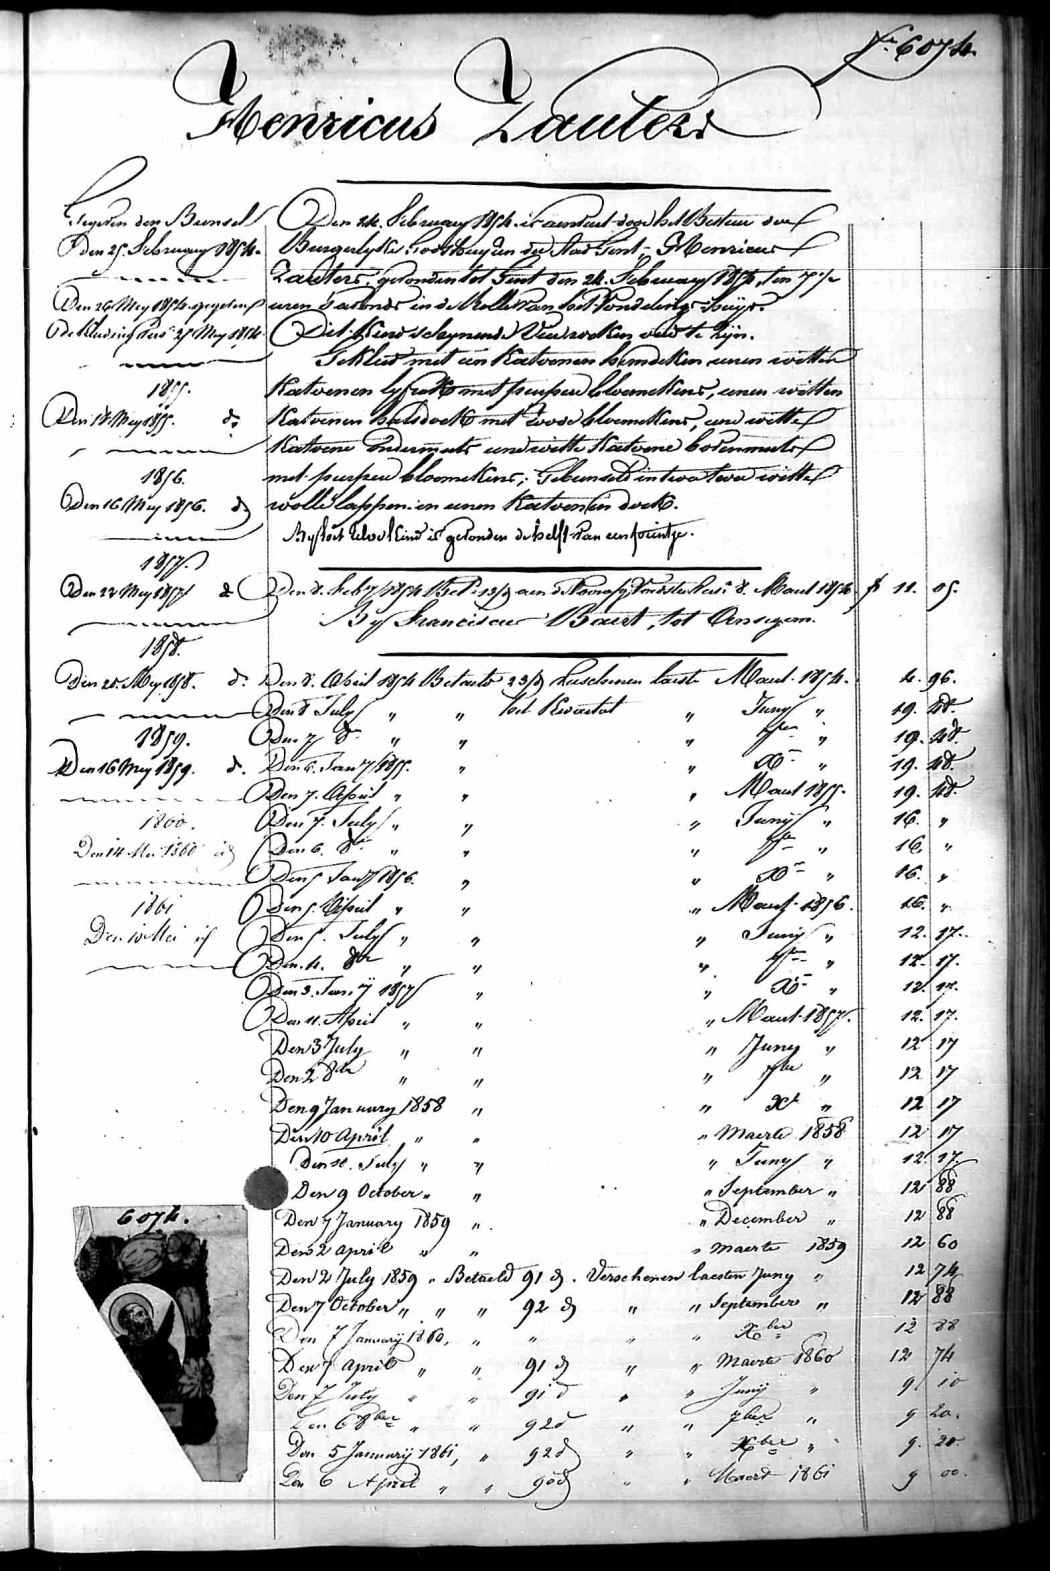 N.° 6074.
Henricus Zauters
Gegeven den Bunsel
Den 25. February 1854.
Den 26 Mey 1854. gegeven
1855.
Den 14 Mey 1855. do
1856.
Den 16 Mey 1856. do
1857.
Den 22 Mey 1857 do
1858.
Den 20. Mey 1858. do
1859.
Den 16 Mey 1859. do
1860.
Den 14 Mei 1860 id
1861
Den 10 Mei if
Den 24. February 1854. is aenveert door het Bestier der
Burgerlyke Godshuyzen der Stad Gent, Henricus
Zauters, gevonden tot Gent den 24. February 1854, ten 7
uren s'avonds in de Rolle van het Vondelings-huys.
Dit kind schynende Veerweken oud te zyn.
Gekleed met een Katoenen hemdeken eenen witten
Katoenen lyfrok met peirpere bloemekens, eenen witten
Katoenen halsdoek met roode bloemekens, eene witte
Katoene ondermuts eene witte Katoene bovenmuts
met peirpere bloemekens; Gebunseld in twee witte
wolle lappen en eenen Katoenen doek.
By het zelve Kind is gevonden de helft van een sointje.
Den 8. Feby 1854 Maert 1854 f 11. 05.
By Franciscus Baert, tot Ansegem.
Den 8. April 1854 Betaelt 23/d Verschenen laeste Maert. 1854. 4. 96.
Den 8 July " " het Kwartael " Juny " 19. 48.
Den 7 8re " " " 7bre " 19. 48.
Den 6. Jany 1855. " " Xre " 19. 48.
Den 7. April " " " Maert 1855. 19. 48.
Den 7. July " " " Juny " 16. "
Den 6. 8bre " " " 7bre " 16. "
Den 5 Jany 1856. " " Xre " 16. "
Den 5. April " " " Maert. 1856. 16. "
Den 5. July " " " Juny " 12. 17.
Den. 4. 8bre " " " 7bre " 12. 17.
Den 3. Jany 1857 " " Xre " 12. 17.
Den 4. April " " " Maert. 1857. 12. 17.
Den 3 July " " " Juny " 12 17
Den 2 8bre " " " 7bre " 12 17
Den 9 January 1858 " " Xr " 12 17
Den 10 April " " " Maerte 1858 12 17
Den 10. July " " " Juny " 12. 17.
Den 9 October " " " September " 12 88
Den 7 January 1859 " " December " 12 88
Den 2 april " " " maerte 1859 12 60
Den 2 July 1859 " Betaeld 91 d. Verschenen laesten Juny " 12 74
Den 7 October " " " 92 d " " September " 12 88
Den 7 Januarij 1860, " " " " Xber " 12 88
Den 7 april " " 91 d " " Maerte 1860 12 74
Den 7 July " " 91 d " " Junij " 9 10
Den 6 8ber " " 92 d " " 7ber " 9 20.
Den 5 Januarij 1861, " 92 d " " Xber " 9. 20.
Den 6 April " " 90 d " " Maert 1861 9 00.
6074.